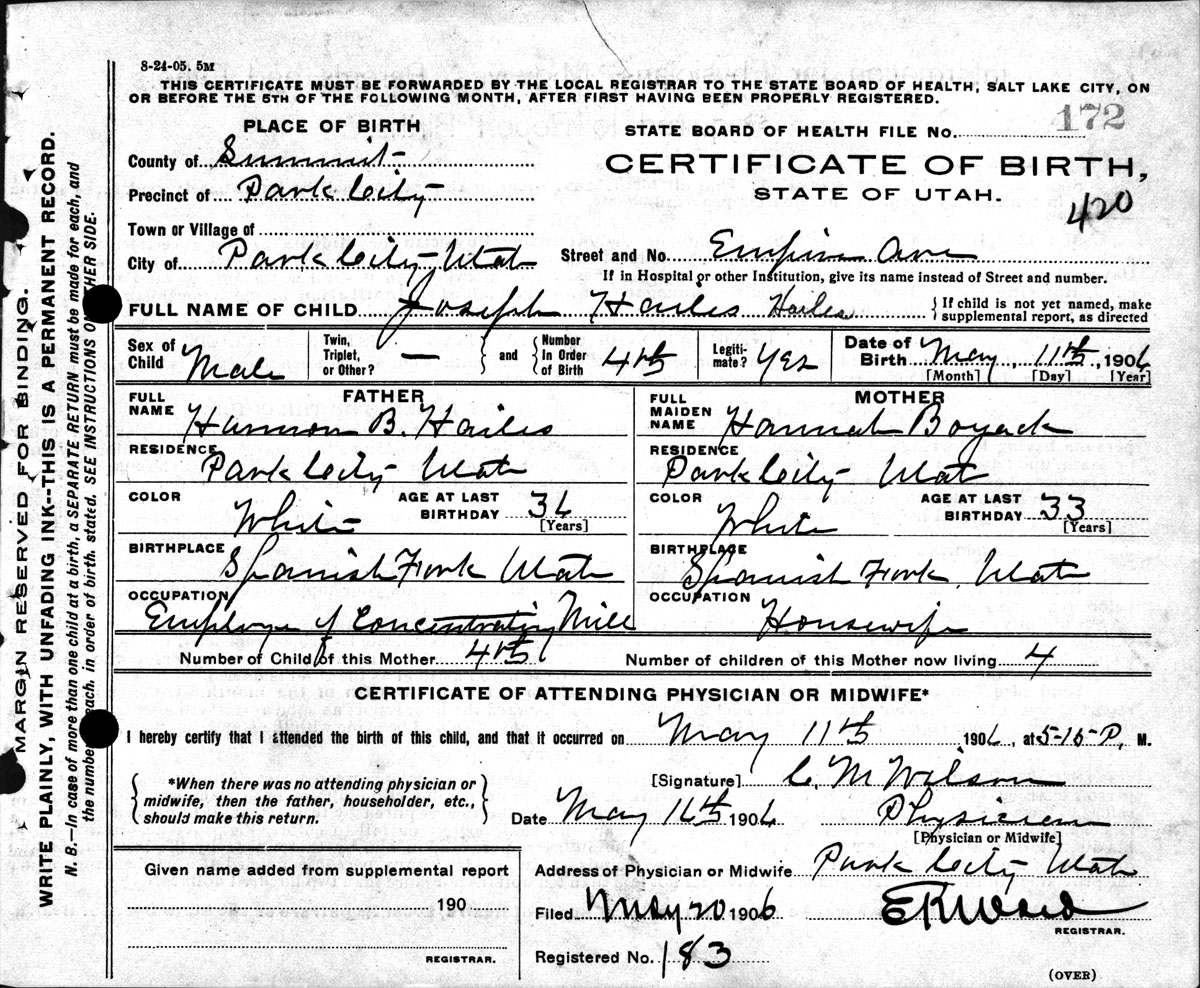 8-24-05. 5M
THIS CERTIFICATE MUST BE FORWARDED BY THE LOCAL REGISTRAR TO THE STATE BOARD OF HEALTH, SALT LAKE CITY, ON
OR BEFORE THE 5TH OF THE FOLLOWING MONTH, AFTER FIRST HAVING BEEN PROPERLY REGISTERED.
MARGIN RESERVED FOR BINDING.
WRITE PLAINLY, WITH UNFADING INK--THIS IS A PERMANENT RECORD.
N. B.—In case of more than one child at a birth, a SEPARATE RETURN must be made for each, and
the number each. in order of birth. stated. SEE INSTRUCTIONS ON OTHER SIDE.
PLACE OF BIRTH
STATE BOARD OF HEALTH FILE No. 172
County of Summit
CERTIFICATE OF BIRTH,
Precinct of Park City
STATE OF UTAH.
420
Town or Village of
City of Park City Utah Street and No. Empire Ave
If in Hospital or other Institution, give its name instead of Street and number.
FULL NAME OF CHILD Joseph Hailes Hailes {If child is not yet named, make
supplemental report, as directed
Sex of Child Male Twin, Triplet, or Other? — and Number In Order of Birth 4th Legitimate? Yes Date of Birth May, 11th, 1906
[Month] [Day] [Year]
FATHER MOTHER
FULL NAME Harmon B. Hailes FULL MAIDEN NAME Hannah Boyack
RESIDENCE Park City Utah RESIDENCE Park City Utah
COLOR White AGE AT LAST BIRTHDAY 36 [Years] COLOR White AGE AT LAST BIRTHDAY 33 [Years]
BIRTHPLACE Spanish Fork Utah BIRTHPLACE Spanish Fork, Utah
OCCUPATION Employe of Concentrating Mill OCCUPATION Housewife
Number of Child of this Mother 4th Number of children of this Mother now living 4
CERTIFICATE OF ATTENDING PHYSICIAN OR MIDWIFE*
I hereby certify that I attended the birth of this child, and that it occurred on May 11th 1906, at 5-15-P. M.
*When there was no attending physician or
midwife, then the father, householder, etc.,
should make this return.
[Signature] C. M Wilson
Date May 16th 1906 Physician
[Physician or Midwife]
Given name added from supplemental report
190
REGISTRAR.
Address of Physician or Midwife Park City Utah
Filed May 20 1906 E R Ward
REGISTRAR.
Registered No. 183
(OVER)